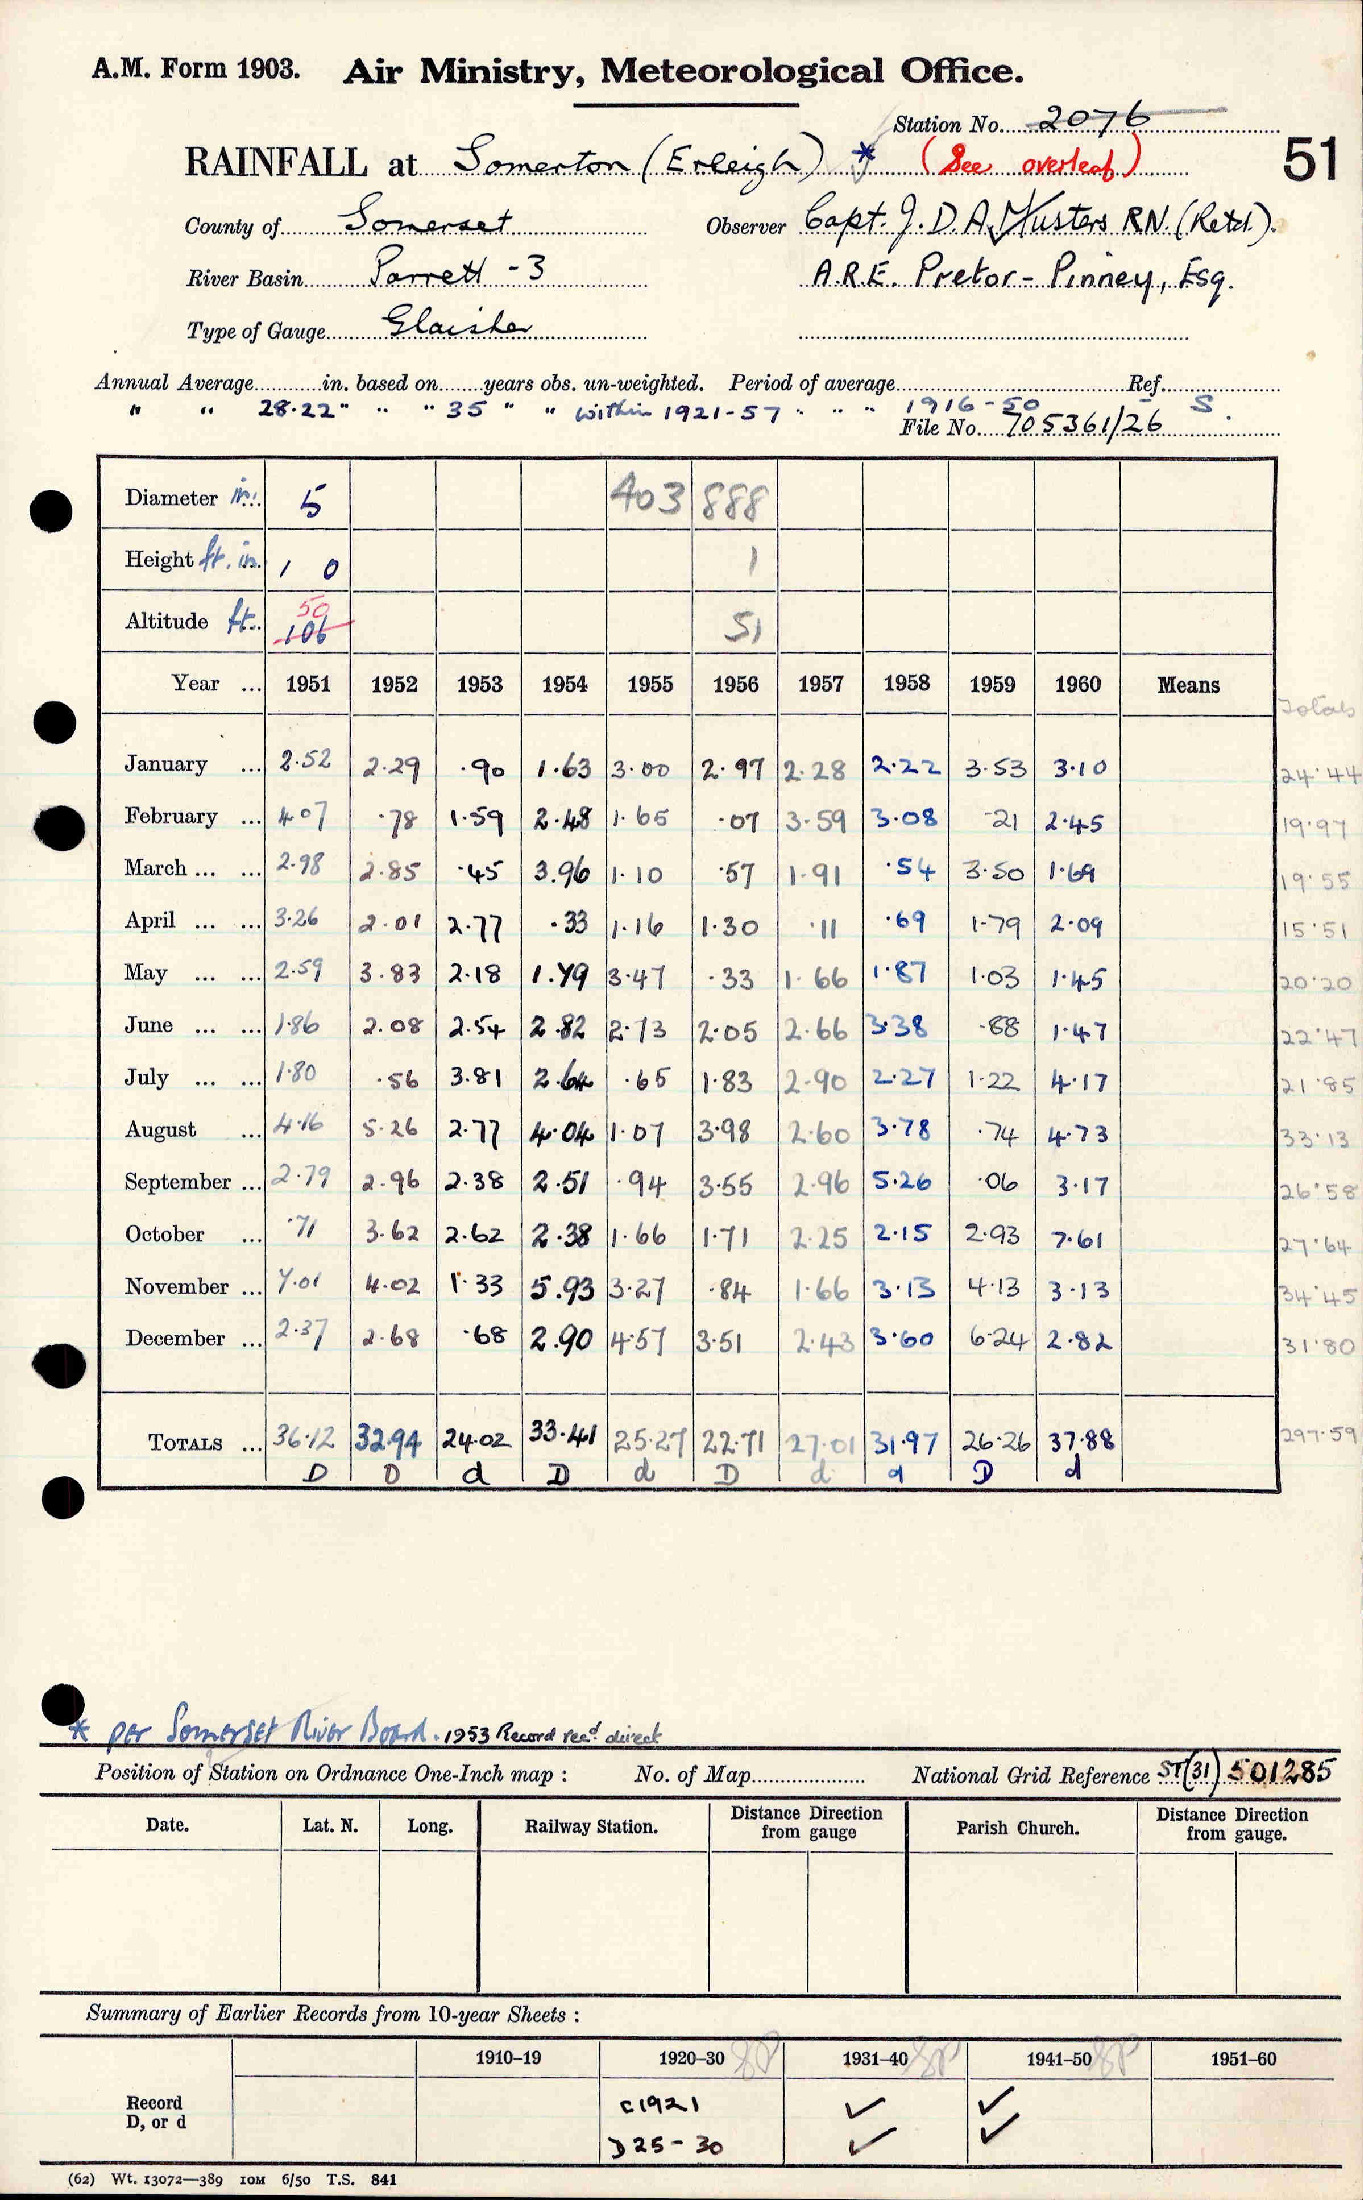 A.M. Form 1903. Air Ministry, Meteorological Office.
Station No. 2076
RAINFALL at Somerton (Erleigh) * (See overleaf) 51
County of Somerset Observer Capt. J. D. A. Musters RN. (Retd).
River Basin Parrett - 3 A.R.E. Pretor-Pinney, Esq.
Type of Gauge Glaisher
Annual Average in. based on years obs. un-weighted. Period of average Ref.
" " 28.22" " " 35 " " within 1921-57 " " " 1916-50 S.
File No. 705361/26
Diameter in. 5 403 888
Height ft. in. 1 0 1
Altitude ft. 50 106 51
Year ... 1951 1952 1953 1954 1955 1956 1957 1958 1959 1960 Means Totals
January ... 2.52 2.29 .90 1.63 3.00 2.97 2.28 2.22 3.53 3.10 24.44
February ... 4.07 .78 1.59 2.48 1.65 .07 3.59 3.08 .21 2.45 19.97
March ... ... 2.98 2.85 .45 3.96 1.10 .57 1.91 .54 3.50 1.69 19.55
April ... ... 3.26 2.01 2.77 .33 1.16 1.30 .11 .69 1.79 2.09 15.51
May ... ... 2.59 3.83 2.18 1.79 3.47 .33 1.66 1.87 1.03 1.45 20.20
June ... ... 1.86 2.08 2.54 2.82 2.73 2.05 2.66 3.38 .88 1.47 22.47
July ... ... 1.80 .56 3.81 2.64 .65 1.83 2.90 2.27 1.22 4.17 21.85
August ... 4.16 5.26 2.77 4.04 1.07 3.98 2.60 3.78 .74 4.73 33.13
September ... 2.79 2.96 2.38 2.51 .94 3.55 2.96 5.26 .06 3.17 26.58
October ... .71 3.62 2.62 2.38 1.66 1.71 2.25 2.15 2.93 7.61 27.64
November ... 7.01 4.02 1.33 5.93 3.27 .84 1.66 3.13 4.13 3.13 34.45
December ... 2.37 2.68 .68 2.90 4.57 3.51 2.43 3.60 6.24 2.82 31.80
TOTALS ... 36.12 32.94 24.02 33.41 25.27 22.71 27.01 31.97 26.26 37.88 297.59
D D d D d D d d D d
* per Somerset River Board. 1953 Record recd. direct
Position of Station on Ordnance One-Inch map : No. of Map National Grid Reference ST(31) 501285
Date. Lat. N. Long. Railway Station. Distance Direction from gauge Parish Church. Distance Direction from gauge.
Summary of Earlier Records from 10-year Sheets :
1910–19 1920–30 1931–40 1941–50 1951–60
Record C1921 ✓ ✓
D, or d D25-30 ✓ ✓
(62) Wt. 13072—389 10M 6/50 T.S. 841